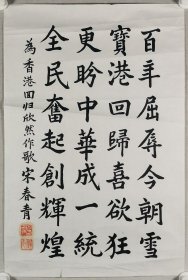 百年屈辱今朝雪
寶港回歸喜欲狂
更盼中華成一統
全民奮起創輝煌
為香港回归欣然作歌 宋春青